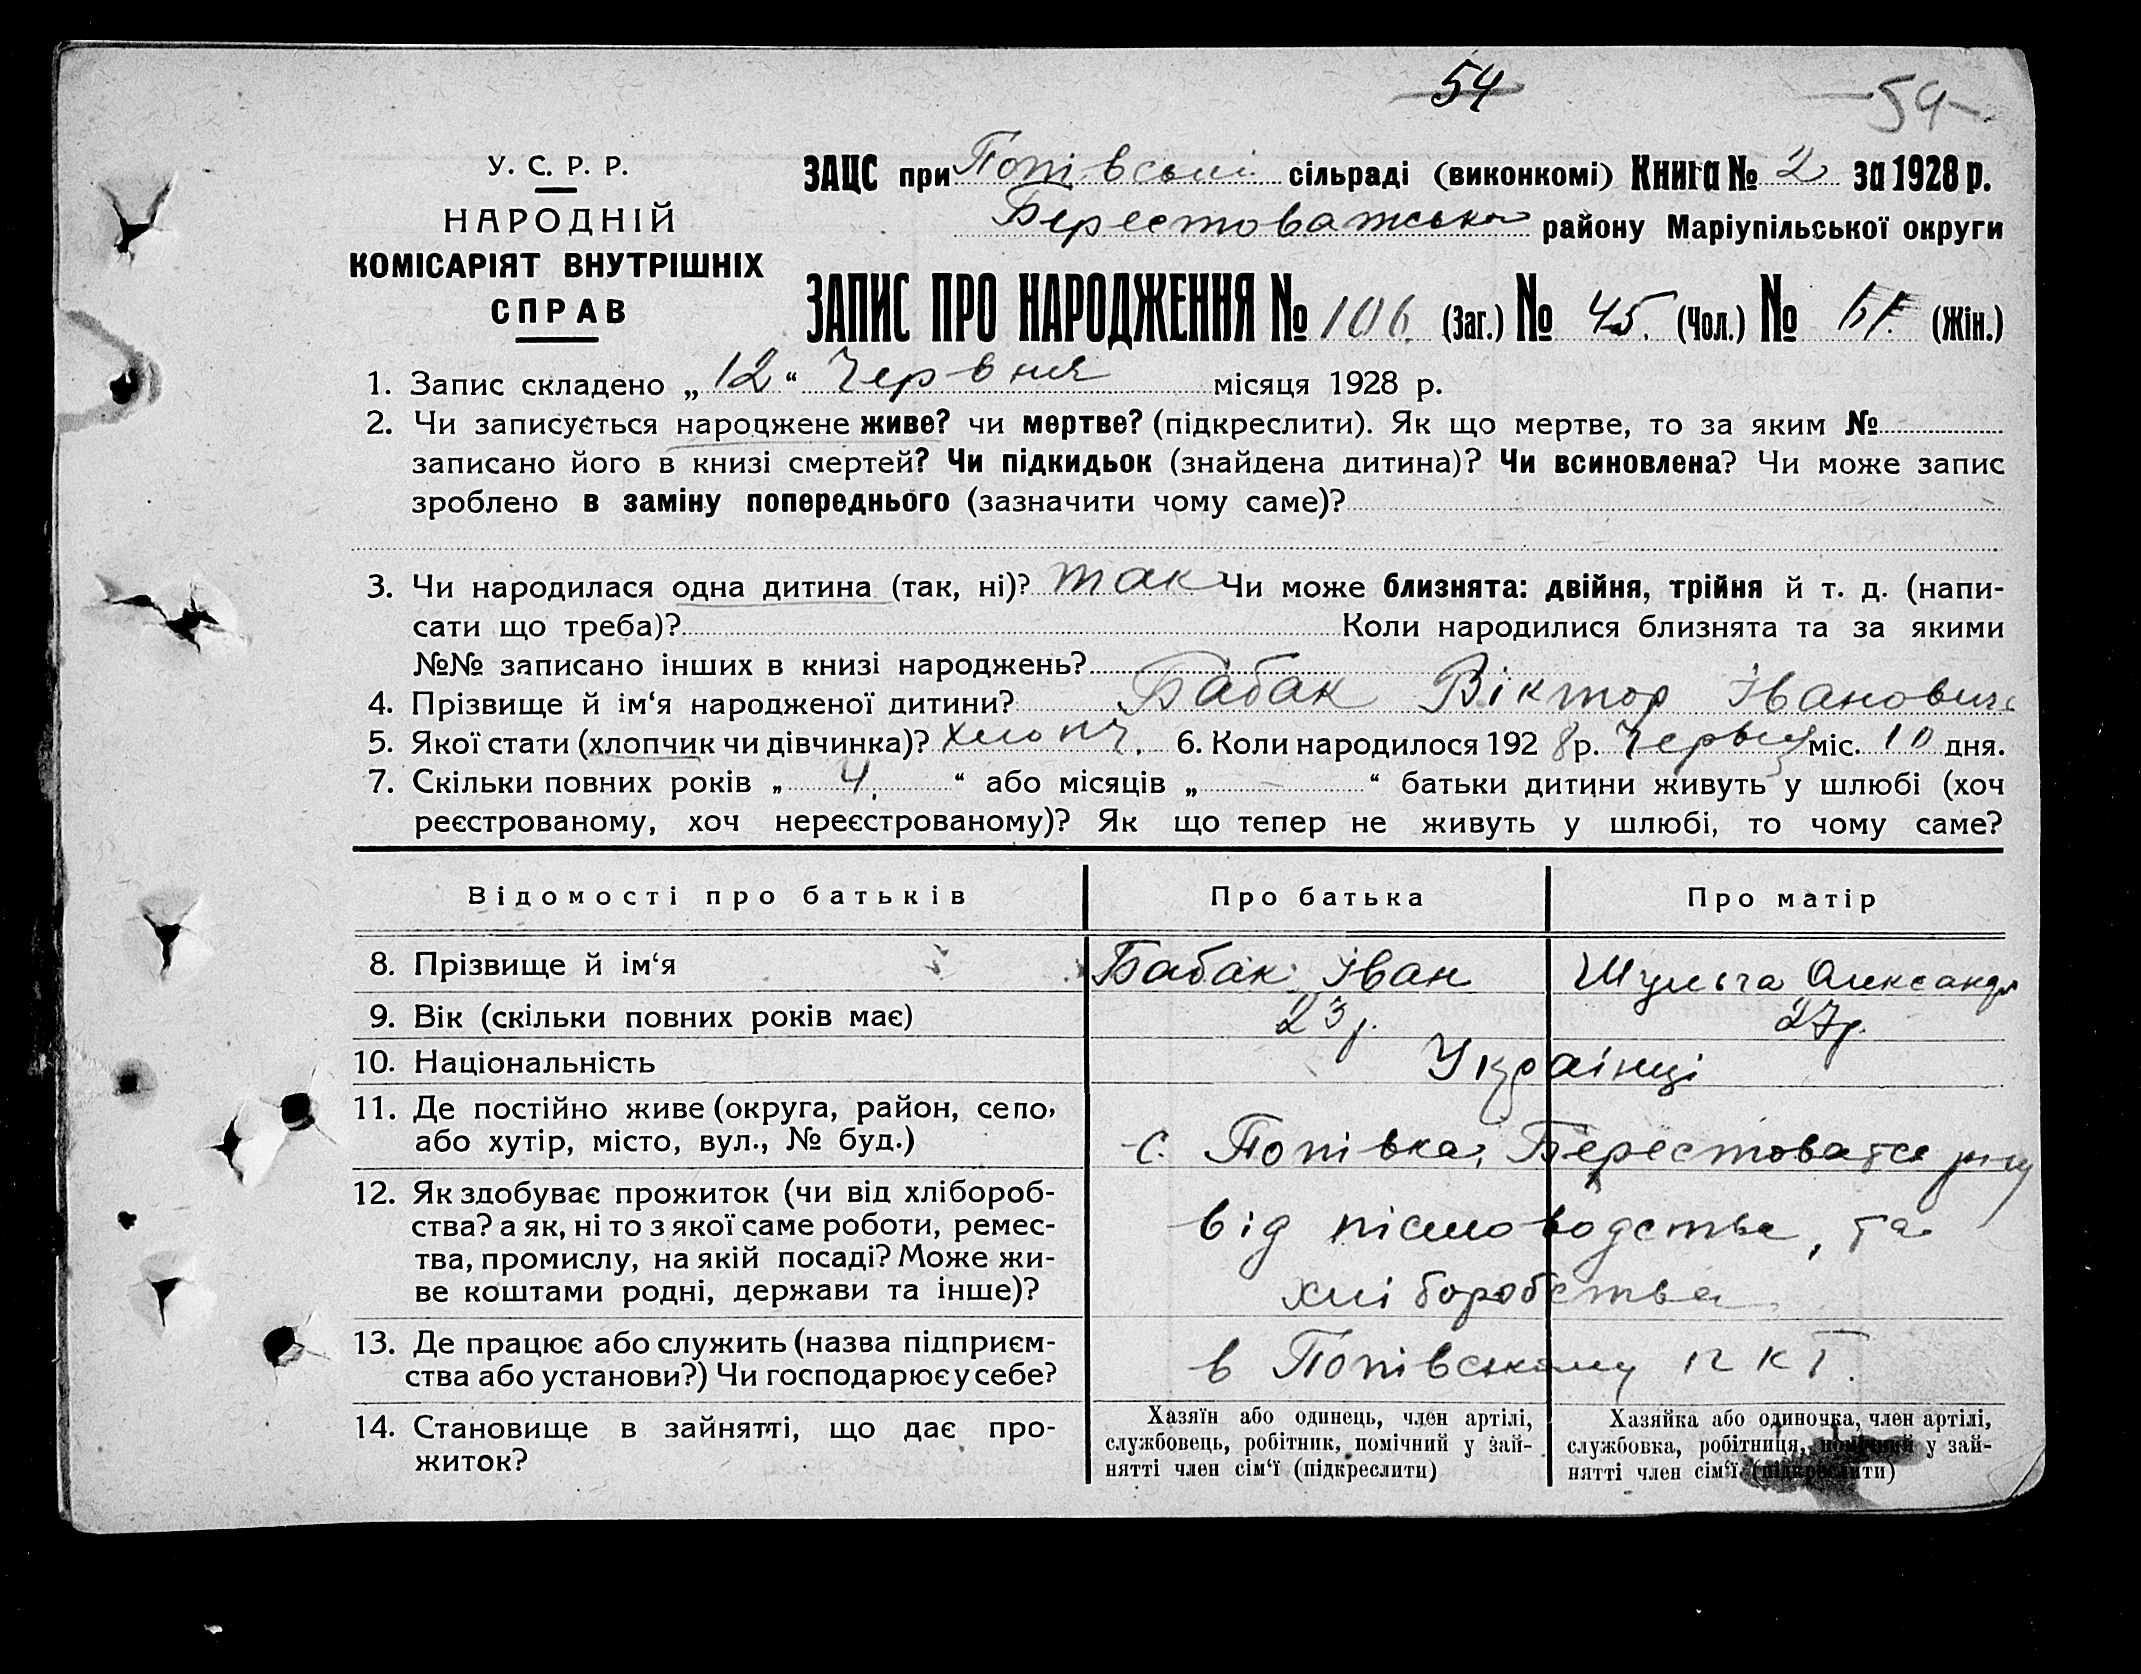 54
54
У. С. Р. Р.
НАРОДНІЙ
КОМІСАРІЯТ ВНУТРІШНІХ
СПРАВ
ЗАЦС при Попівські сільраді (виконкомі) Книга № 2 за 1928 р.
Берестоватська району Маріупільської округи
ЗАПИС ПРО НАРОДЖЕННЯ № 106. (Заг.) № 45. (Чол.) № (Жін.)
1. Запис складено „ 12 “ Червня місяця 1928 р.
2. Чи записується народжене живе? чи мертве? (підкреслити). Як що мертве, то за яким №
записано його в книзі смертей? Чи підкидьок (знайдена дитина)? Чи всиновлена? Чи може запис
зроблено в заміну попереднього (зазначити чому саме)?
3. Чи народилася одна дитина (так, ні)? так Чи може близнята: двійня, трійня й т. д. (напи-
сати що треба)? Коли народилися близнята та за якими
№№ записано інших в книзі народжень?
4. Прізвище й ім‘я народженої дитини? Бабак Віктор Іванович
5. Якої стати (хлопчик чи дівчинка)? хлопч. 6. Коли народилося 1928 р. Червня міс. 10 дня.
7. Скільки повних років „ 4. “ або місяців „ “ батьки дитини живуть у шлюбі (хоч
реєстрованому, хоч нереєстрованому)? Як що тепер не живуть у шлюбі, то чому саме?
Відомості про батьків Про батька Про матір
8. Прізвище й ім‘я Бабак Іван Шульга Олександр
9. Вік (скільки повних років має) 23 р. 27 р.
10. Національність Українці
11. Де постійно живе (округа, район, село,
або хутір, місто, вул., № буд.) с. Попівка, Берестоватс р-ну
12. Як здобуває прожиток (чи від хлібороб-
ства? а як, ні то з якої саме роботи, ремес-
тва, промислу, на якій посаді? Може жи-
ве коштами родні, держави та інше)?
від письмоводства, та
хліборобства
13. Де працює або служить (назва підприєм-
ства або установи?) Чи господарює у себе?
в Попівському п К Т.
14. Становище в зайнятті, що дає про-
житок?
Хазяїн або одинець, член артілі,
службовець, робітник, помічний у зай-
нятті член сім‘ї (підкреслити)
Хазяйка або одиночка, член артілі,
службовка, робітниця, помічний у зай-
нятті член сім‘ї (підкреслити)